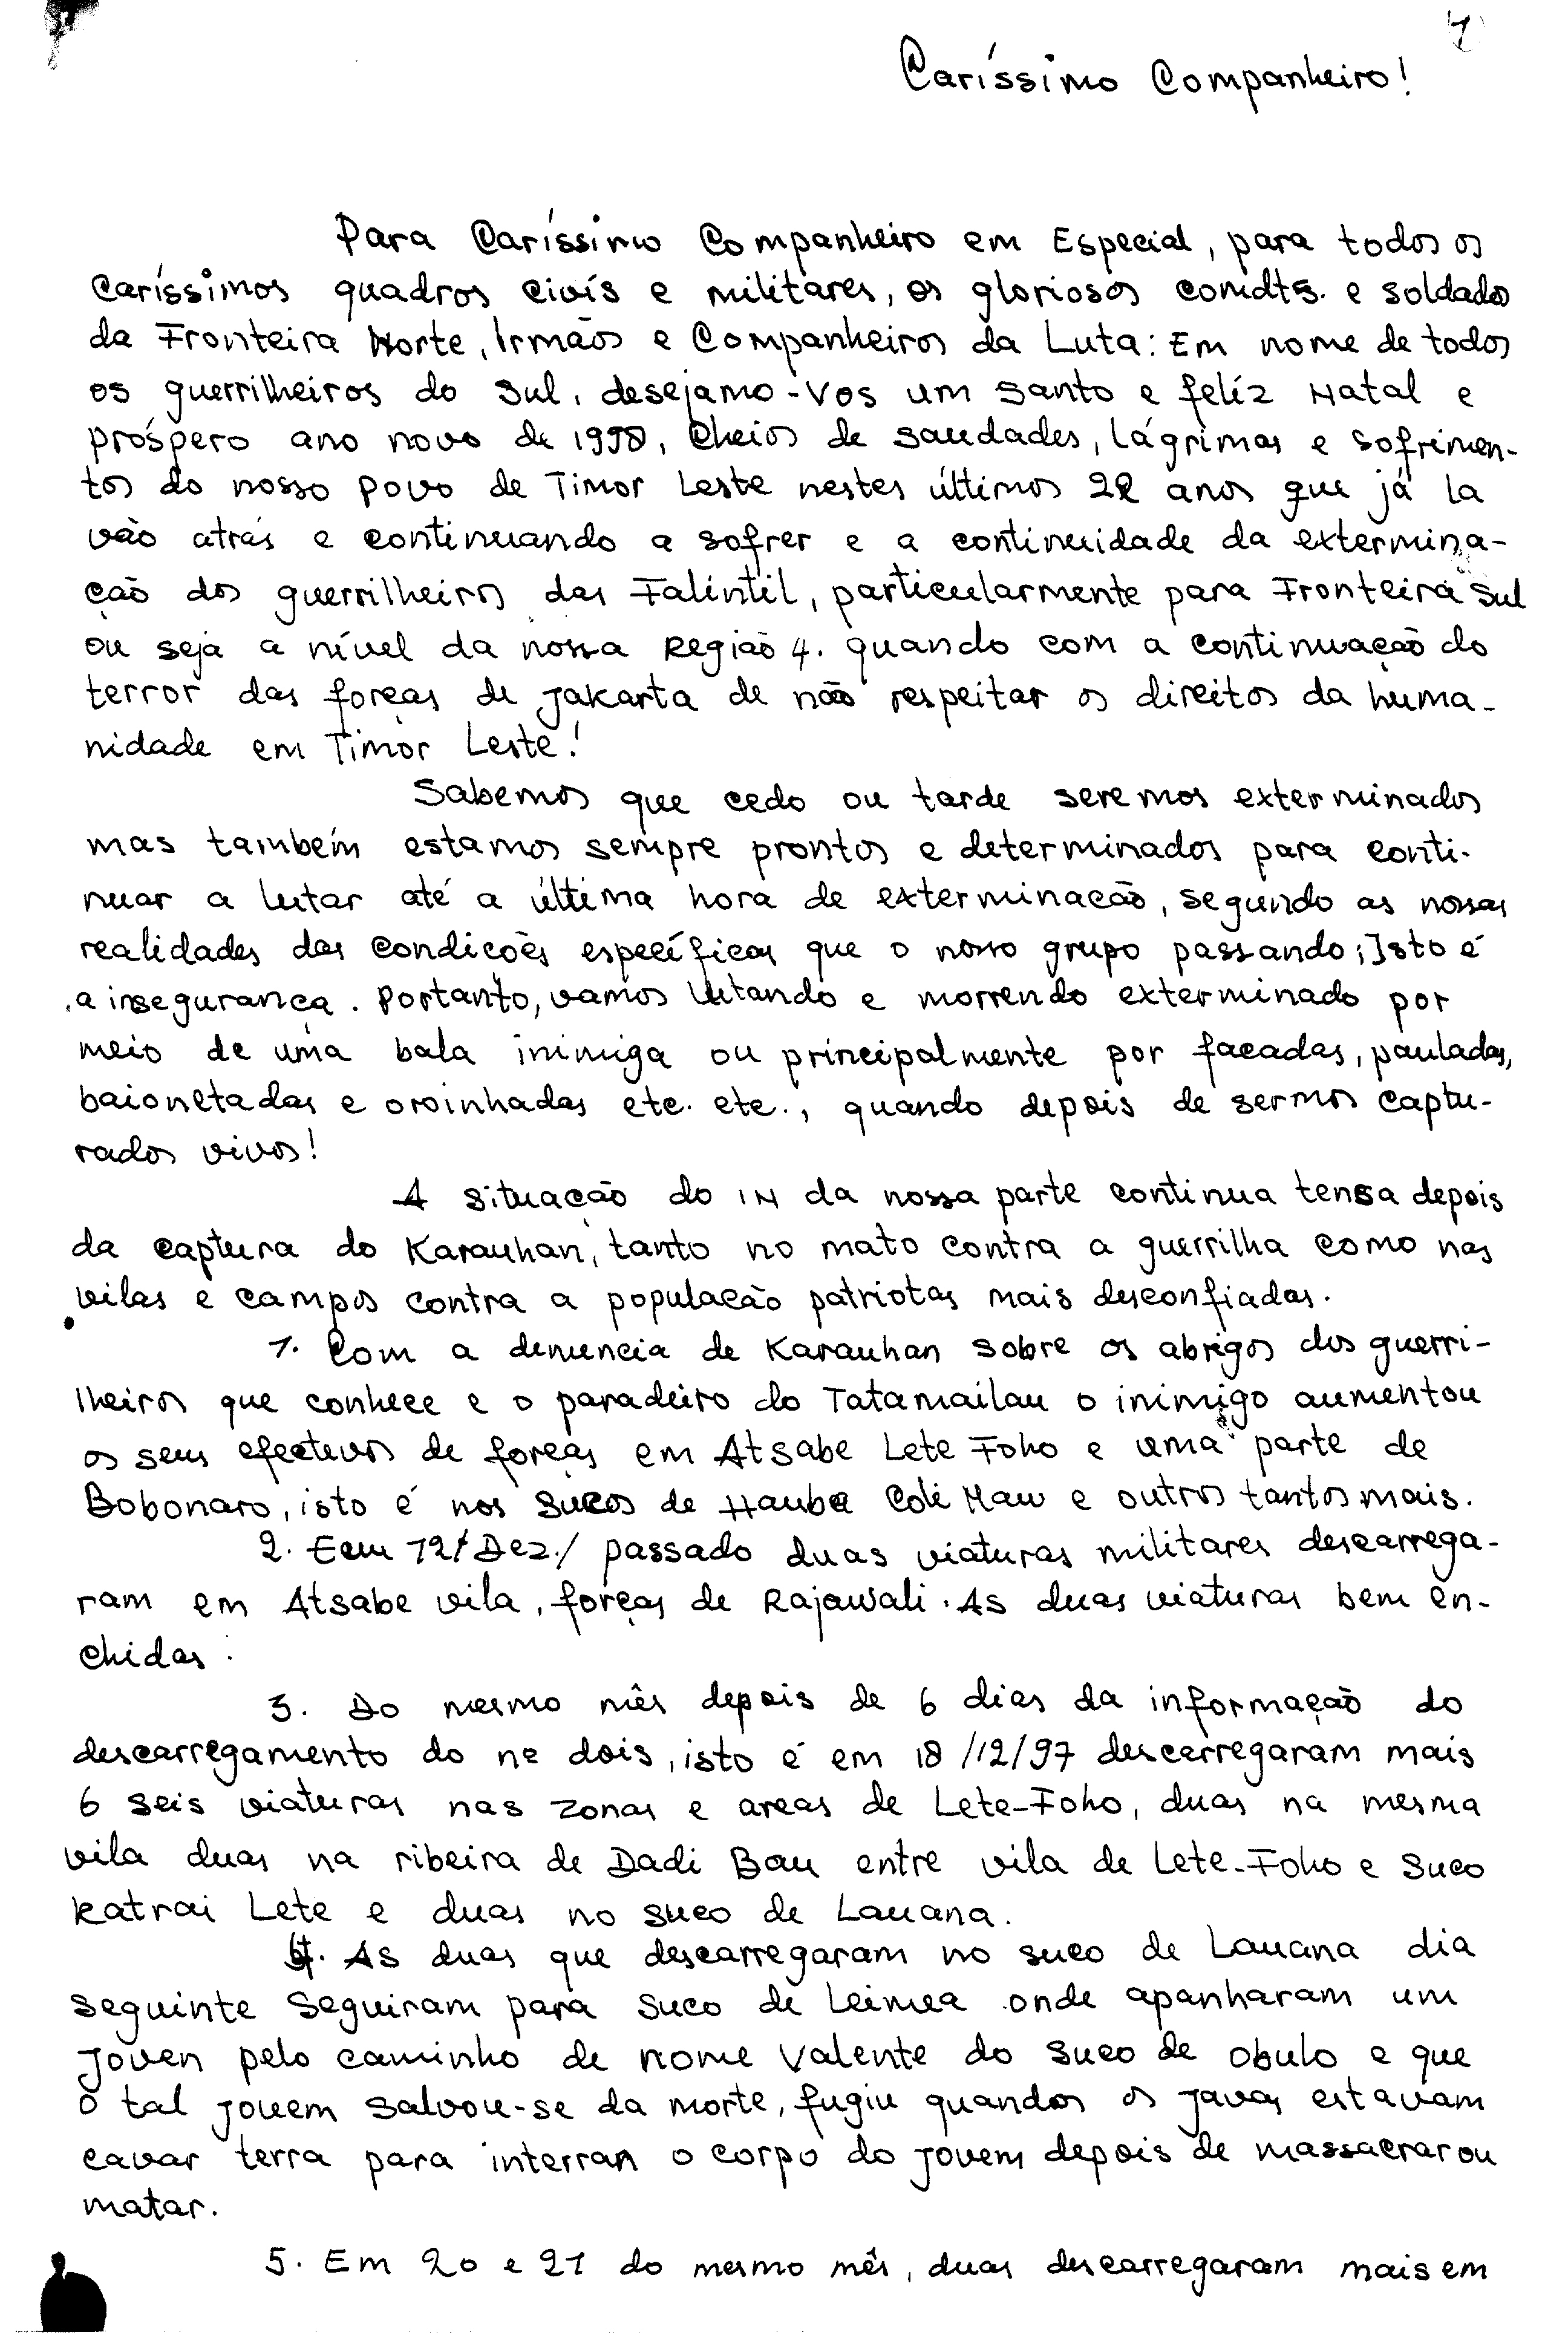 1
Caríssimo Companheiro!
Para Caríssimo Companheiro em Especial, para todos os
Caríssimos quadros civís e militares, os gloriosos comdts. e soldados
da Fronteira Norte, Irmãos e Companheiros da Luta: Em nome de todos
os guerrilheiros do Sul, desejamo-Vos um Santo e felíz Natal e
próspero ano novo de 1998, Cheios de saudades, Lágrimas e sofrimen-
tos do nosso povo de Timor Leste nestes últimos 22 anos que já la
vão atrás e continuando a sofrer e a continuidade da extermina-
ção dos guerrilheiros das Falintil, particularmente para Fronteira Sul
ou seja a nível da nossa Região 4. quando com a continuação do
terror das forças de Jakarta de não respeitar os direitos da huma-
nidade em Timor Leste!
Sabemos que cedo ou tarde seremos exterminados
mas também estamos sempre prontos e determinados para conti-
nuar a lutar até a última hora de exterminacão, segundo as nossas
realidades das Condicões específicas que o nosso grupo passando; Isto é
a insegurança. Portanto, vamos lutando e morrendo exterminado por
meio de uma bala inimiga ou principalmente por facadas, pauladas,
baionetadas e oroinhadas etc. etc., quando depois de sermos captu-
rados vivos!
A situação do IN da nossa parte continua tensa depois
da captura do Karauhan, tanto no mato contra a guerrilha como nas
vilas e campos contra a população patriotas mais desconfiadas.
1. Com a denuncia de Karauhan sobre os abrigos dos guerri-
lheiros que conhece e o paradeiro do Tatamailau o inimigo aumentou
os seus efectivos de forças em Atsabe Lete Foho e uma parte de
Bobonaro, isto é nos sucos de Hauba Coli Maw e outros tantos mais.
2. Em 12/Dez./ passado duas viaturas militares descarrega-
ram em Atsabe vila, forças de Rajawali. As duas viaturas bem en-
chidas.
3. Do mesmo mês depois de 6 dias da informação do
descarregamento do nº dois, isto é em 18/12/97 descerregaram mais
6 seis viaturas nas zonas e areas de Lete-Foho, duas na mesma
vila duas na ribeira de Dadi Bau entre vila de Lete-Foho e Suco
Katrai Lete e duas no suco de Lauana.
4. As duas que descarregaram no suco de Lauana dia
seguinte seguiram para suco de Leimea onde apanharam um
Joven pelo caminho de nome Valente do suco de Obulo e que
o tal jovem salvou-se da morte, fugiu quandos os javas estavam
cavar terra para interran o corpo do jovem depois de massacrar ou
matar.
5. Em 20 e 21 do mesmo mês, duas descarregaram mais em